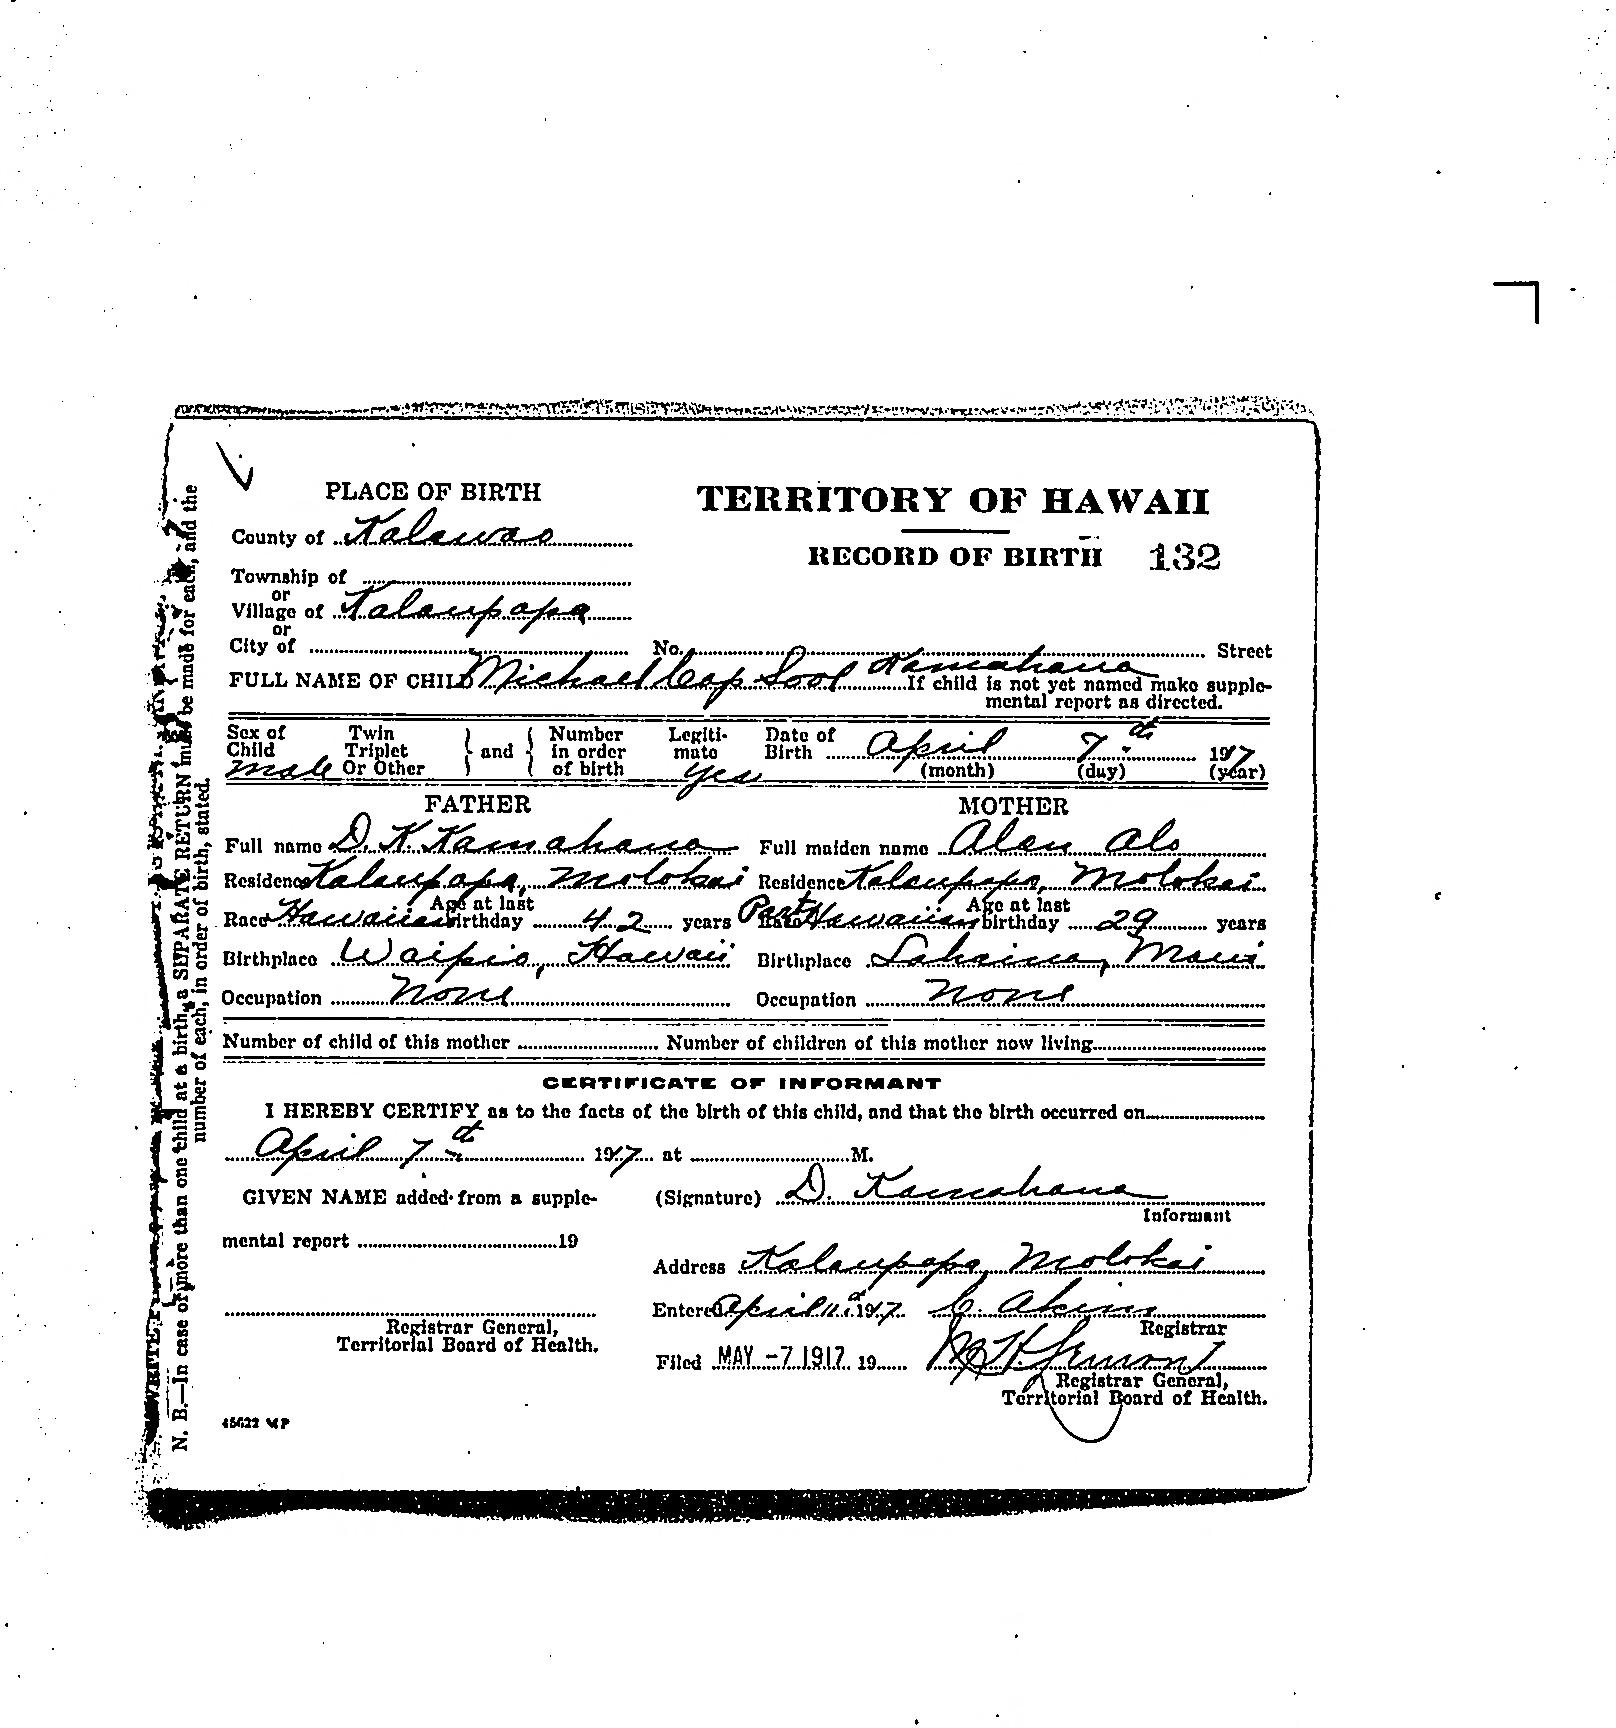 PLACE OF BIRTH
TERRITORY OF HAWAII
County of Kalawao
RECORD OF BIRTH 132
Township of
or
Village of Kalaupapa
or
City of No. Street
FULL NAME OF CHILD Michael Cap Sool Kamahana
If child is not yet named make supple-
mental report as directed.
Sex of Child Male
Twin Triplet Or Other } and { Number in order of birth
Legiti-mate yes
Date of Birth April 7th 1917
(month) (day) (year)
FATHER
Full name D. K. Kamahana
Residence Kalaupapa, Molokai
Race Hawaiian Age at last birthday 42 years
Birthplace Waipio, Hawaii
Occupation None
MOTHER
Full maiden name Alen Alo
Residence Kalaupapa, Molokai
Race Part Hawaiian Age at last birthday 29 years
Birthplace Lahaina, Maui
Occupation None
Number of child of this mother Number of children of this mother now living
CERTIFICATE OF INFORMANT
I HEREBY CERTIFY as to the facts of the birth of this child, and that the birth occurred on
April 7th 1917 at M.
GIVEN NAME added from a supple-
mental report 19
Registrar General,
Territorial Board of Health.
(Signature) D. Kamahana
Informant
Address Kalaupapa, Molokai
Entered April 11th 1917 C. Akim
Registrar
Filed MAY -7 1917 19
Registrar General,
Territorial Board of Health.
45622 MP
N. B.—In case of more than one child at a birth, a SEPARATE RETURN must be made for each, and the
number of each, in order of birth, stated.